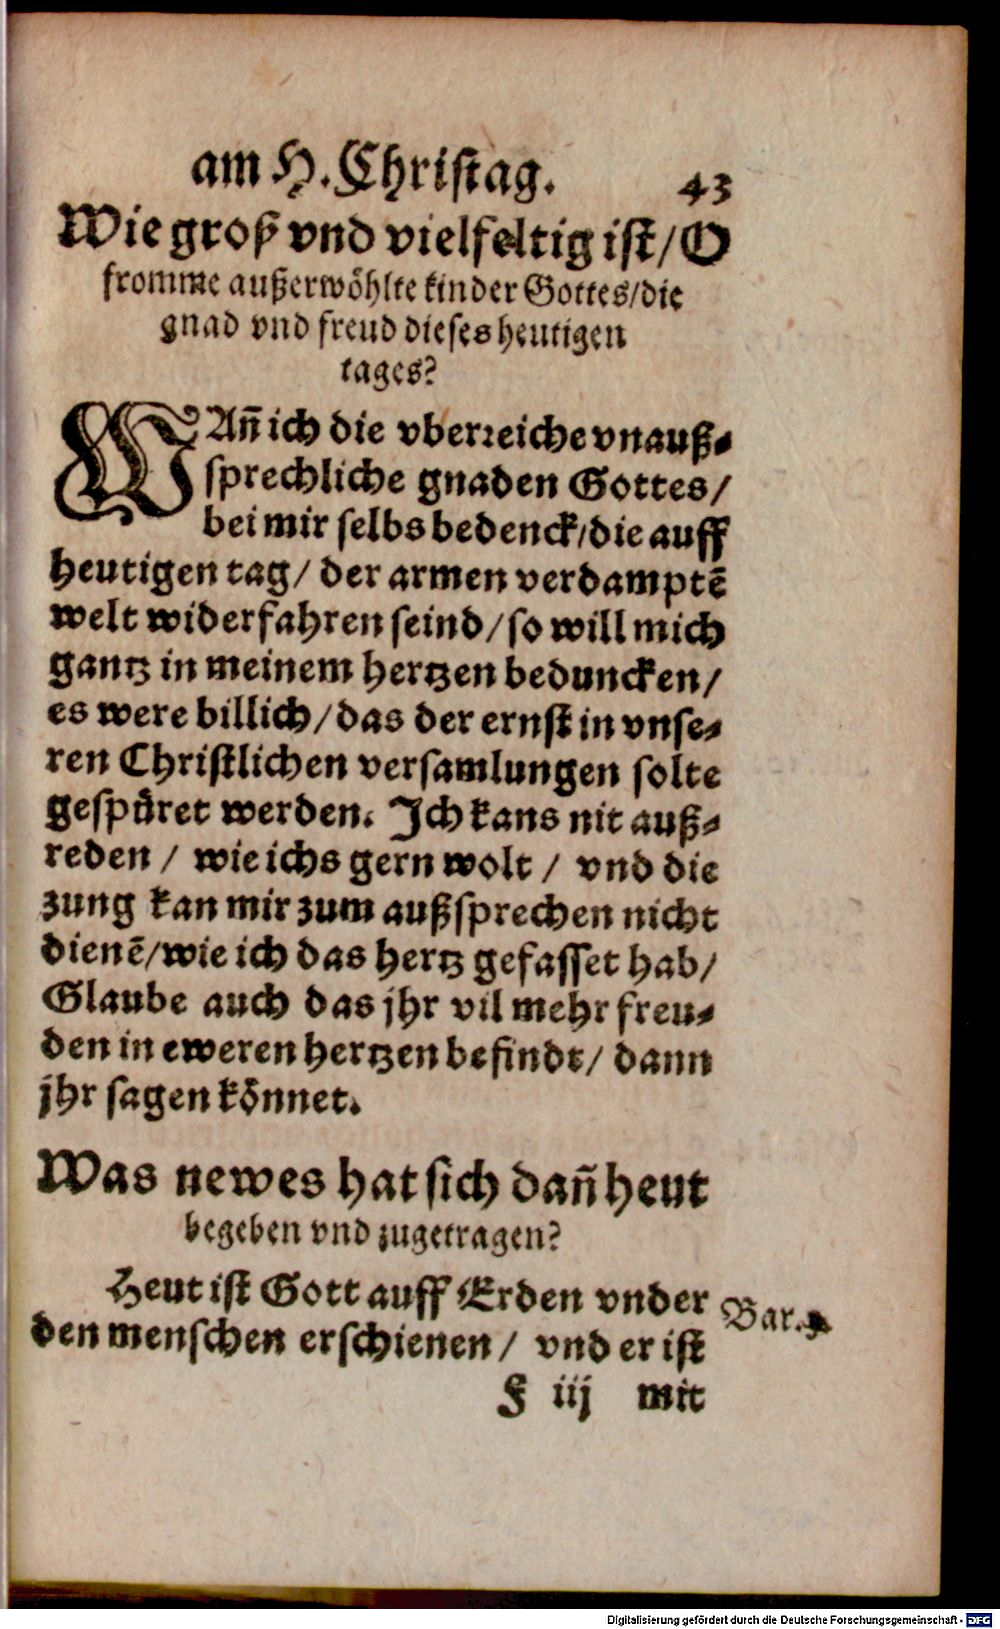 am H. Christag. 43
Wie groß vnd vielfeltig ist/ O
fromme außerwöhlte kinder Gottes/die
gnad vnd freud dieses heutigen
tages?
WAn̄ ich die vberreiche vnauß⸗
sprechliche gnaden Gottes/
bei mir selbs bedenck/die auff
heutigen tag/ der armen verdamptē
welt widerfahren seind/so will mich
gantz in meinem hertzen beduncken/
es were billich/das der ernst in vnse⸗
ren Christlichen versamlungen solte
gespüret werden. Ich kans nit auß⸗
reden / wie ichs gern wolt / vnd die
zung kan mir zum außsprechen nicht
dienē/wie ich das hertz gefasset hab/
Glaube auch das jhr vil mehr freu⸗
den in eweren hertzen befindt/ dann
jhr sagen könnet.
Was newes hat sich dan̄ heut
begeben vnd zugetragen?
Heut ist Gott auff Erden vnder
Bar.
den menschen erschienen/ vnd er ist
F iij mit
Digitalisierung gefördert durch die Deutsche Forschungsgemeinschaft - DFG